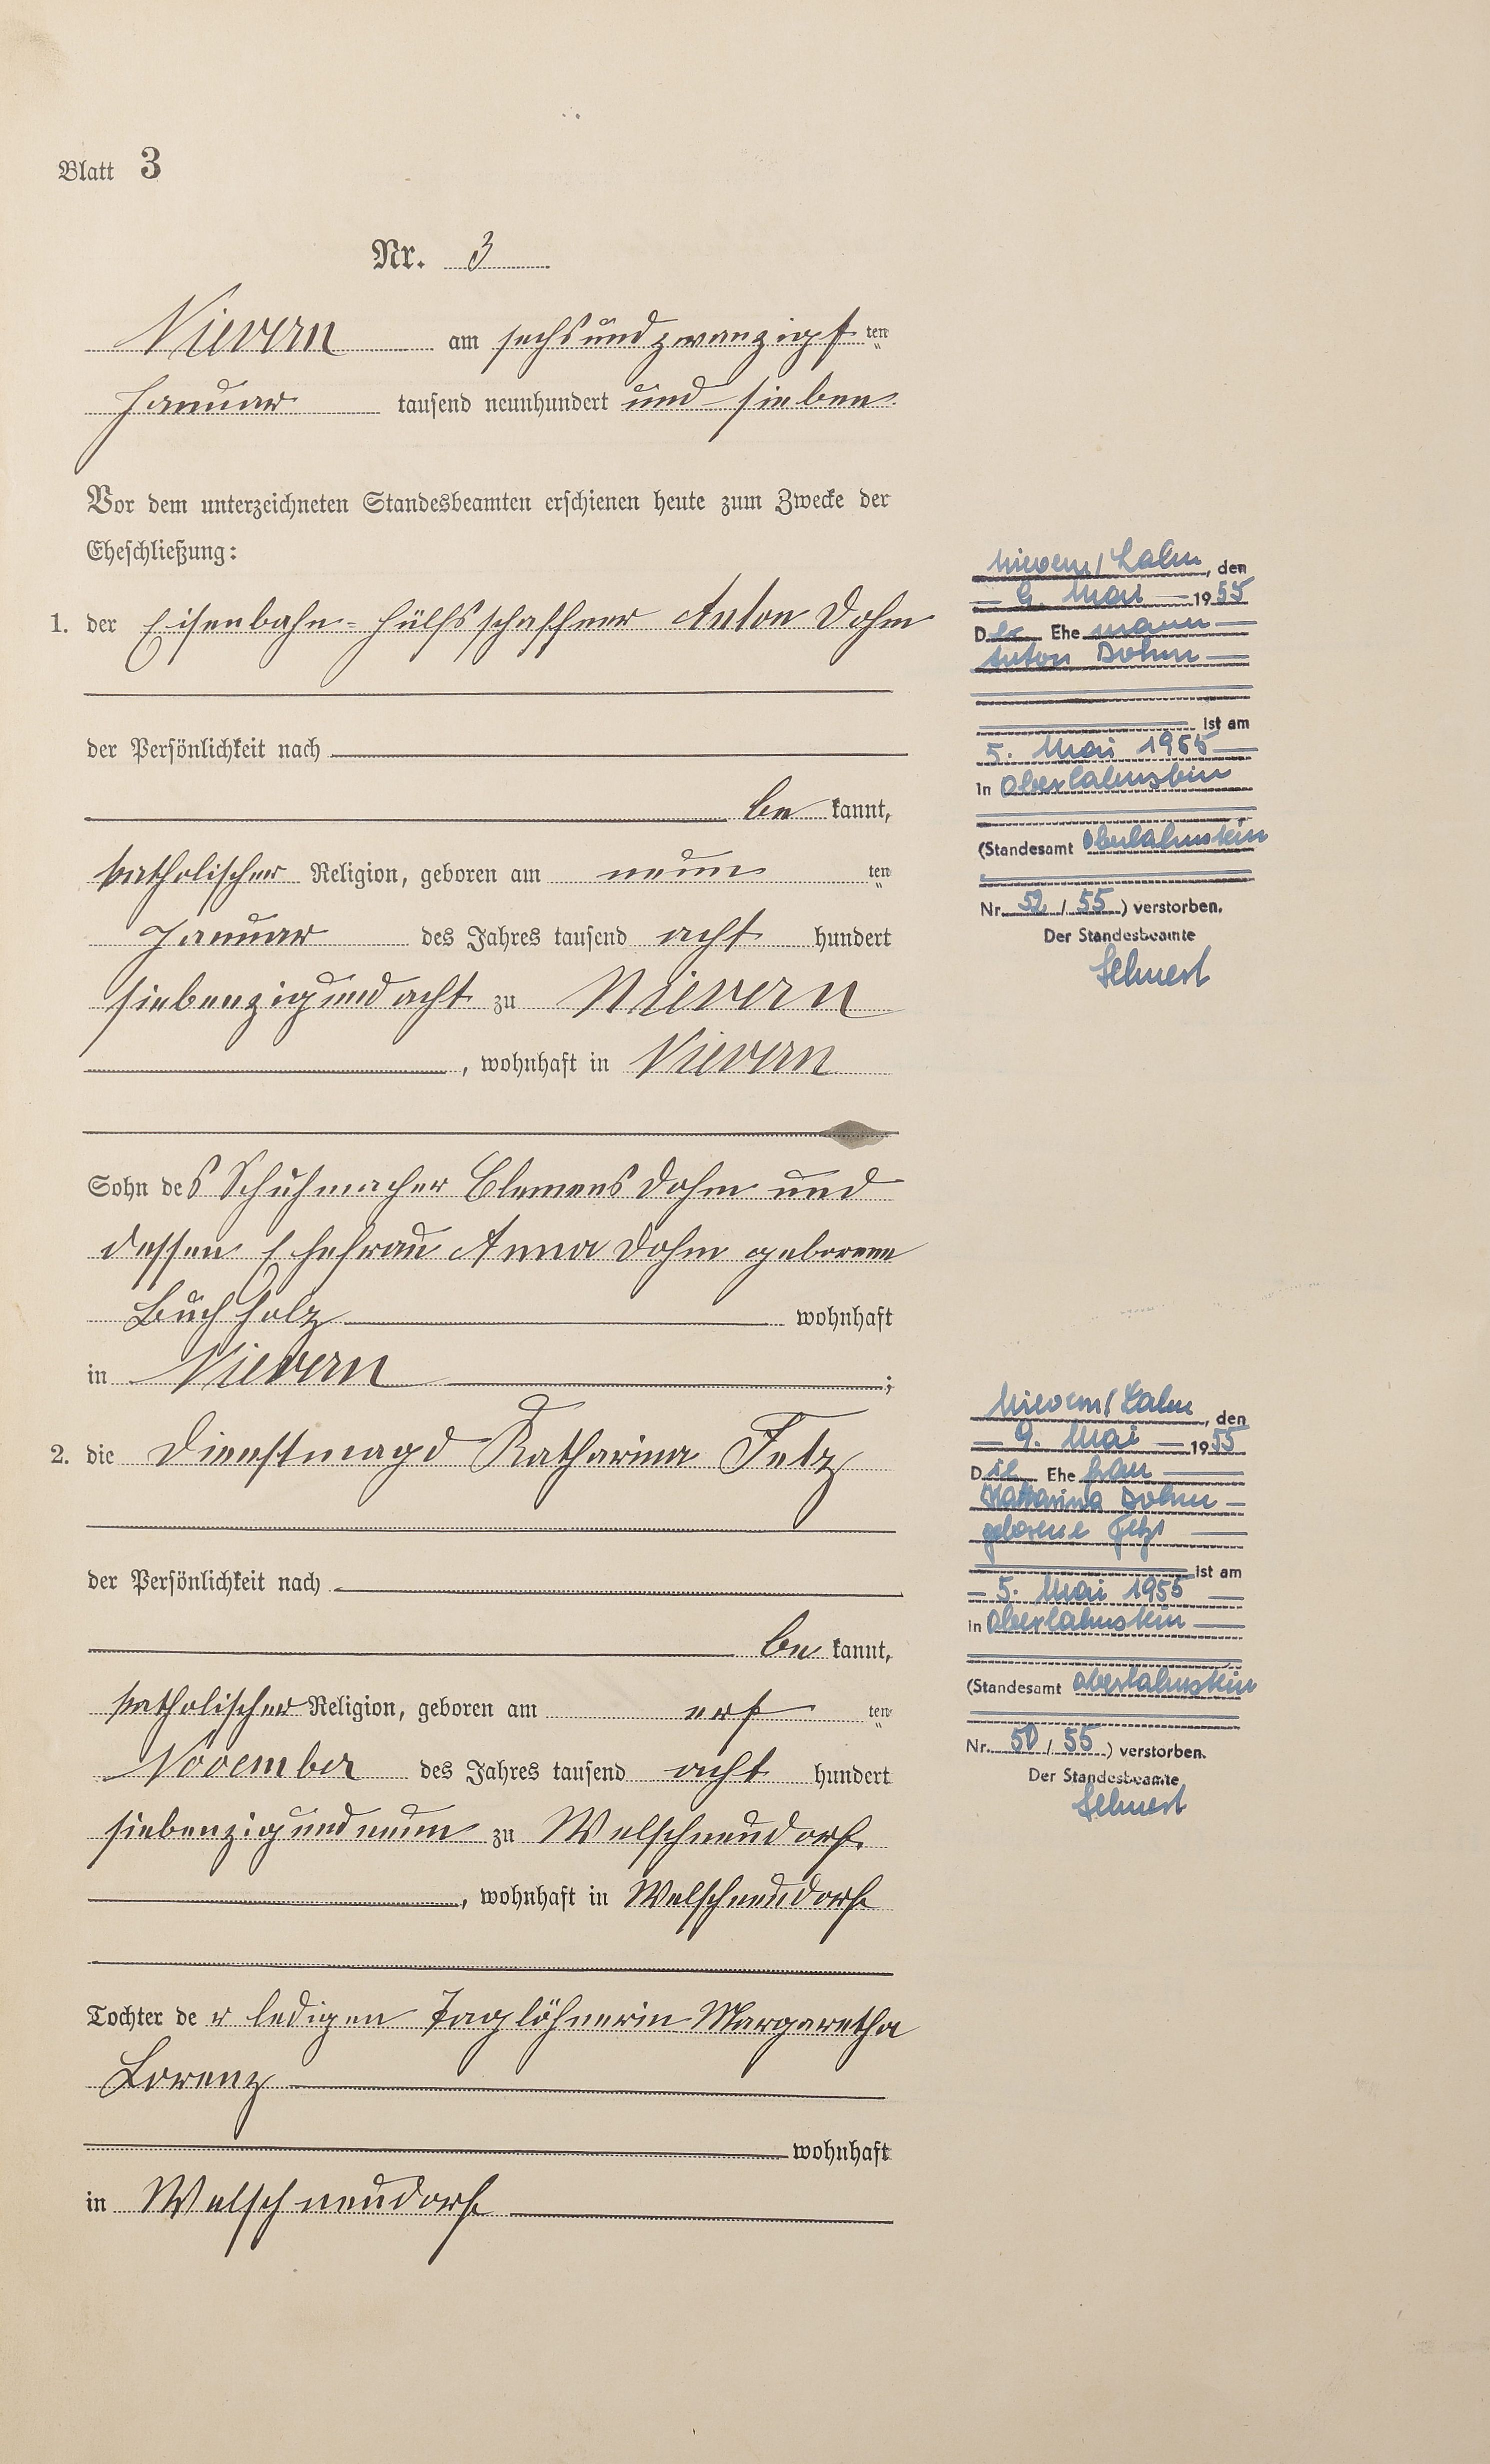 Blatt 3
Nr. 3
Nievern am sechsundzwanzigsten
Januar tausend neunhundert und sieben
Vor dem unterzeichneten Standesbeamten erschienen heute zum Zwecke der
Eheschließung:
1. der Eisenbahn-Hülfsschaffner Anton Dohm
der Persönlichkeit nach
be kannt,
katholischer Religion, geboren am neun ten
Januar des Jahres tausend acht hundert
siebenzigundacht zu Nievern
, wohnhaft in Nievern
Sohn des Schuhmacher Clemens Dohm und
dessen Ehefrau Anna Dohm geborene
Buchholz wohnhaft
in Nievern ;
2. die Dienstmagd Katharina Fetz
der Persönlichkeit nach
be kannt,
katholischer Religion, geboren am ersten
November des Jahres tausend acht hundert
siebenzigundneun zu Welschneudorf
, wohnhaft in Welschneudorf
Tochter der ledigen Taglöhnerin Margaretha
Lorenz
wohnhaft
in Welschneudorf
Nievern/Lahn, den
9. Mai 1955
Der Ehemann
Anton Dohm
ist am
5. Mai 1955
in Oberlahnstein
(Standesamt Oberlahnstein
Nr. 52 / 55) verstorben.
Der Standesbeamte
Nievern/Lahn, den
9. Mai 1955
Die Ehefrau
Katharina Dohm
geborene Fetz
ist am
5. Mai 1955
in Oberlahnstein
(Standesamt Oberlahnstein
Nr. 50 / 55) verstorben.
Der Standesbeamte